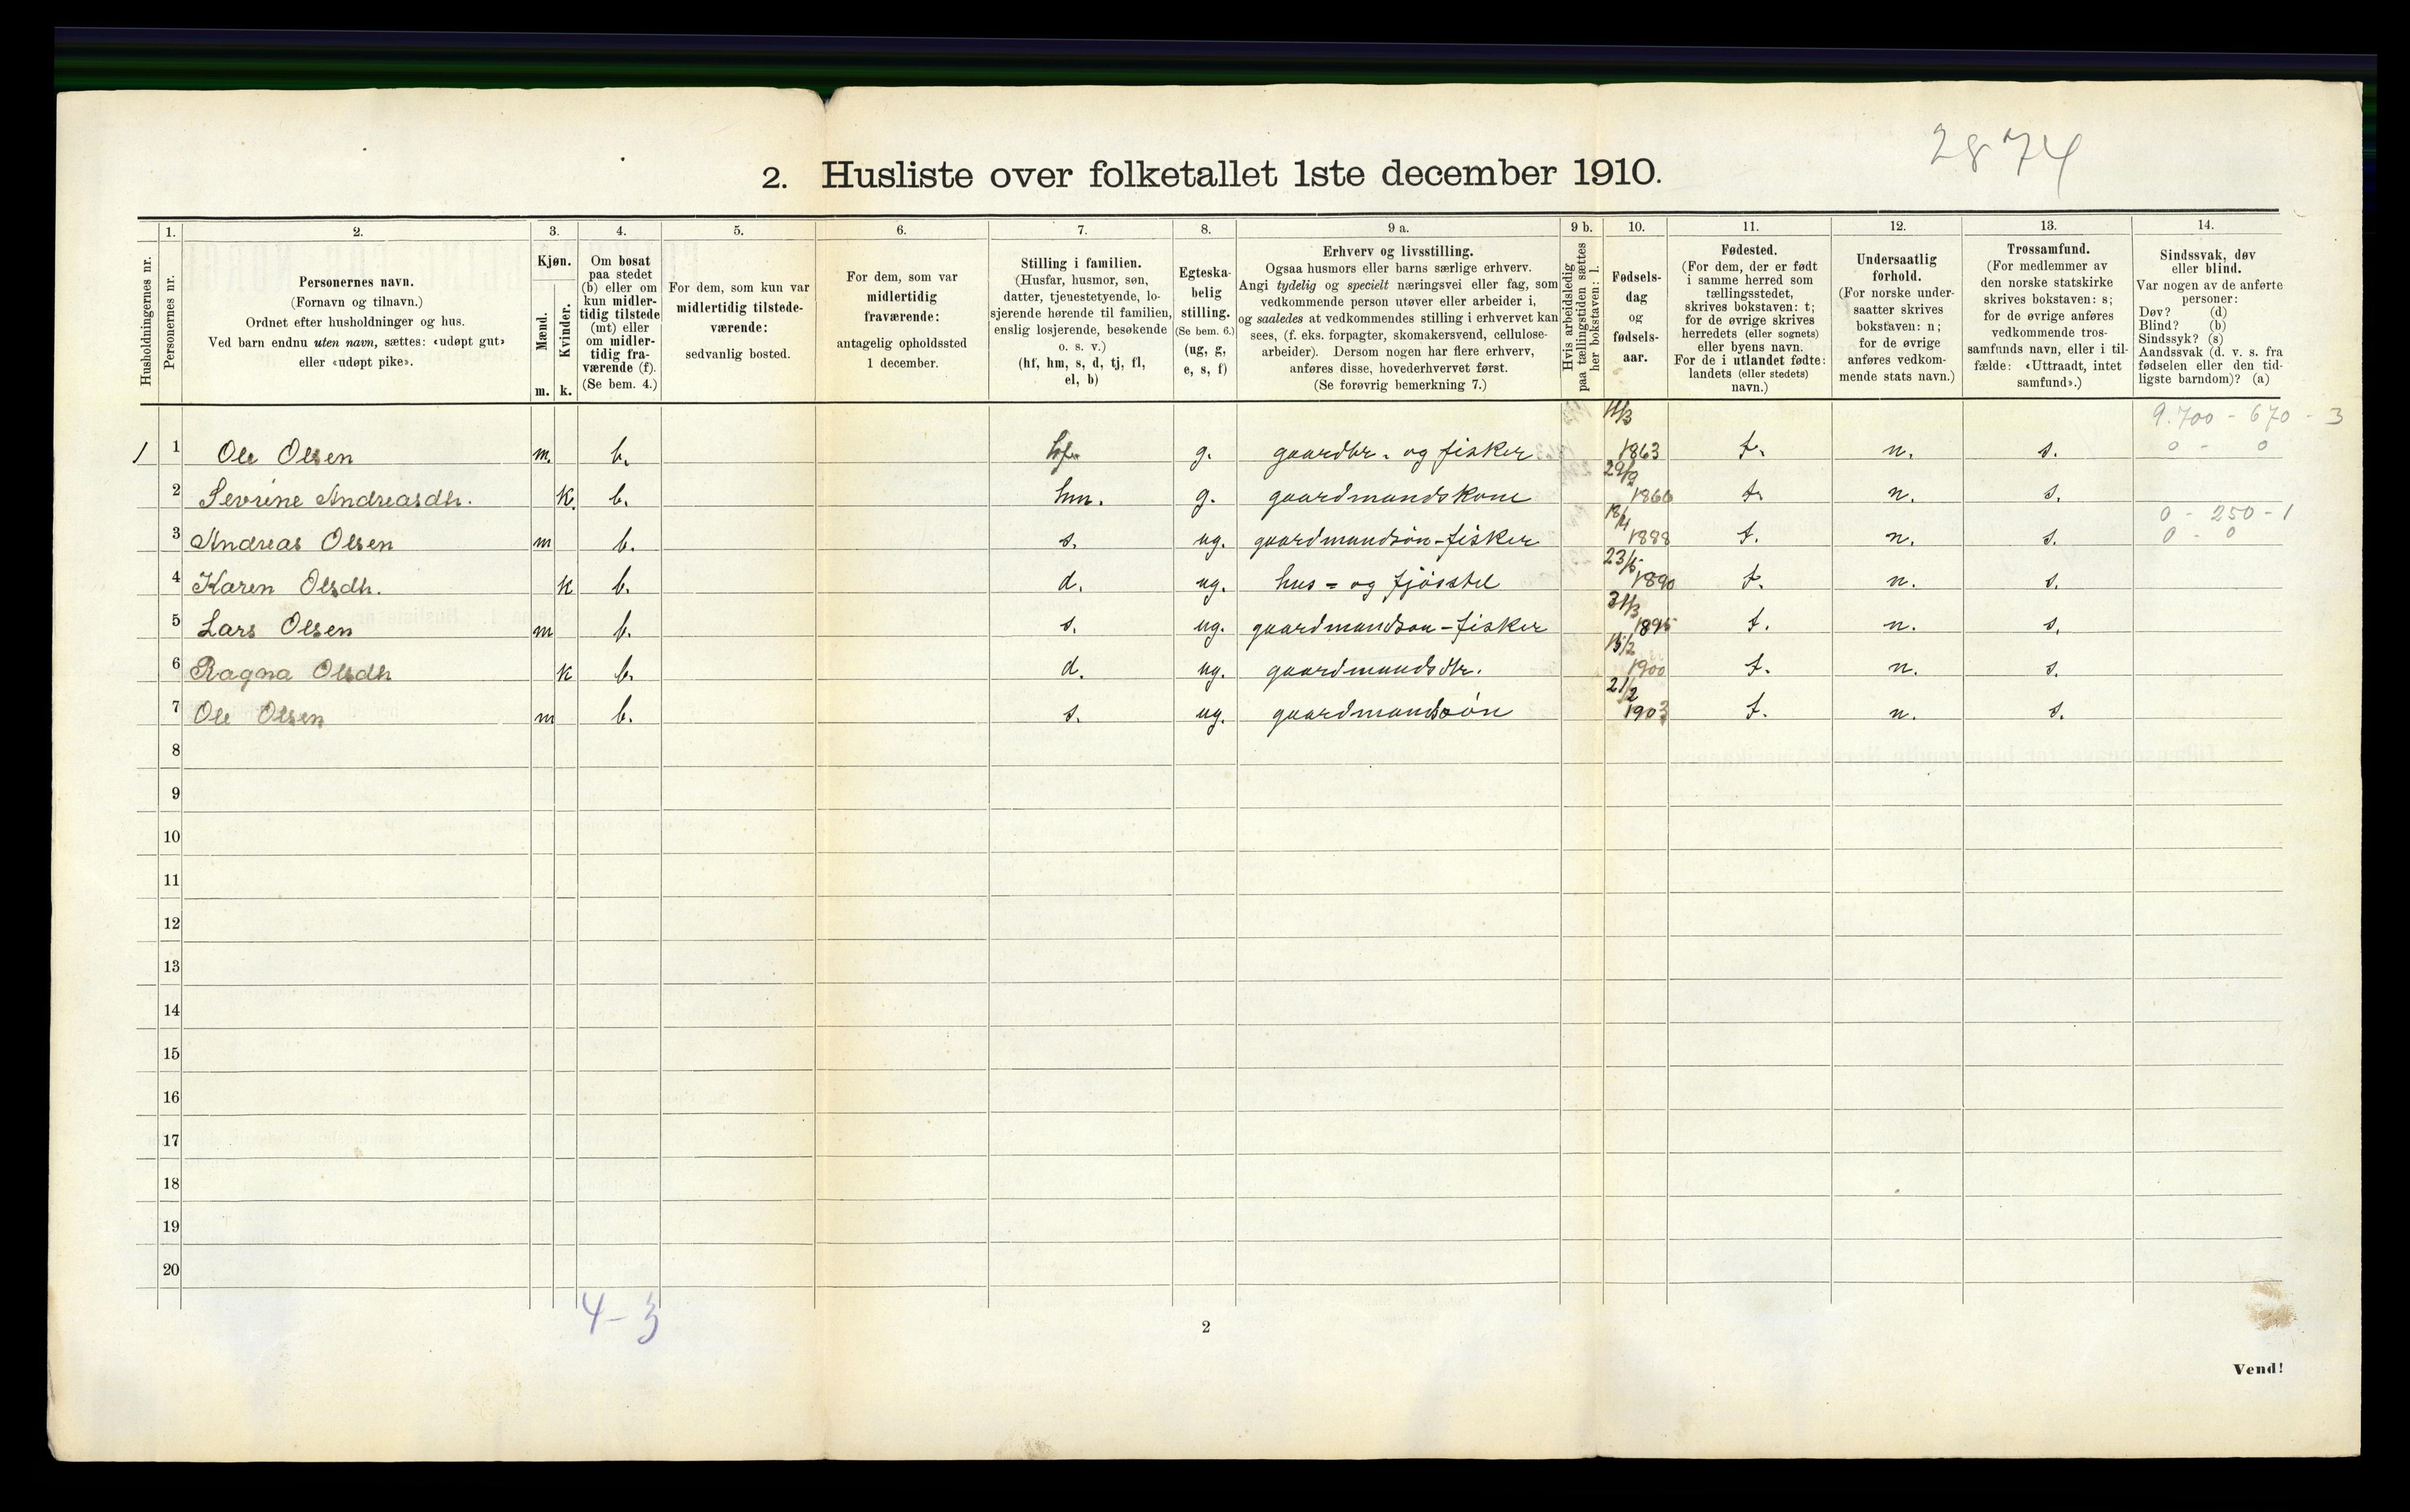 2874
2. Husliste over folketallet 1ste december 1910.
Husholdningernes nr.
1.
Personernes nr.
2.
Personernes navn.
(Fornavn og tilnavn.)
Ordnet efter husholdninger og hus.
Ved barn endnu uten navn, sættes: «udøpt gut»
eller «udøpt pike».
3.
Kjøn.
Mænd.
Kvinder.
m. k.
4.
Om bosat
paa stedet
(b) eller om
kun midler-
tidig tilstede
(mt) eller
om midler-
tidig fra-
værende (f).
(Se bem. 4.)
5.
For dem, som kun var
midlertidig tilstede-
værende:
sedvanlig bosted.
6.
For dem, som var
midlertidig
fraværende:
antagelig opholdssted
1 december.
7.
Stilling i familien.
(Husfar, husmor, søn,
datter, tjenestetyende, lo-
sjerende hørende til familien,
enslig losjerende, besøkende
o. s. v.)
(hf, hm, s, d, tj, fl,
el, b)
8.
Egteska-
belig
stilling.
(Se bem. 6.)
(ug, g,
e, s, f)
9 a.
Erhverv og livsstilling.
Ogsaa husmors eller barns særlige erhverv.
Angi tydelig og specielt næringsvei eller fag, som
vedkommende person utøver eller arbeider i,
og saaledes at vedkommendes stilling i erhvervet kan
sees, (f. eks. forpagter, skomakersvend, cellulose-
arbeider). Dersom nogen har flere erhverv,
anføres disse, hovederhvervet først.
(Se forøvrig bemerkning 7.)
9 b.
Hvis arbeidsledig
paa tællingstiden sættes
her bokstaven: l.
10.
Fødsels-
dag
og
fødsels-
aar.
11.
Fødested.
(For dem, der er født
i samme herred som
tællingsstedet,
skrives bokstaven: t;
for de øvrige skrives
herredets (eller sognets)
eller byens navn.
For de i utlandet fødte:
landets (eller stedets)
navn.)
12.
Undersaatlig
forhold.
(For norske under-
saatter skrives
bokstaven: n;
for de øvrige
anføres vedkom-
mende stats navn.)
13.
Trossamfund.
(For medlemmer av
den norske statskirke
skrives bokstaven: s;
for de øvrige anføres
vedkommende tros-
samfunds navn, eller i til-
fælde: «Uttraadt, intet
samfund».)
14.
Sindssvak, døv
eller blind.
Var nogen av de anførte
personer:
Døv? (d)
Blind? (b)
Sindssyk? (s)
Aandssvak (d. v. s. fra
fødselen eller den tid-
ligste barndom)? (a)
9.700 - 670 - 3
1 1 Ole Olsen m. b. hf. g. gaardbr. og fisker 1863 t. n. s. 0 - 0
2 Sevrine Andreasdh. k. b. hm. g. gaardmandskone 29/9 1866 t. n. s.
0 - 250 - 1
3 Andreas Olsen m b. s. ug. gaardmandsøn-fisker 1888 t. n. s. 0 - 0
4 Karen Olsdh. k b. d. ug. hus = og fjøsstel 23/5 1890 t. n. s.
5 Lars Olsen m b. s. ug. gaardmandsøn-fisker 31/3 1895 t. n. s.
6 Ragna Olsdh k b. d. ug. gaardmandsdtr. 15/2 1900 t. n. s.
7 Ole Olsen m b. s. ug. gaardmandsøn 21/2 1903 t. n. s.
8
9
10
11
12
13
14
15
16
17
18
19
20
4-3
2
Vend!